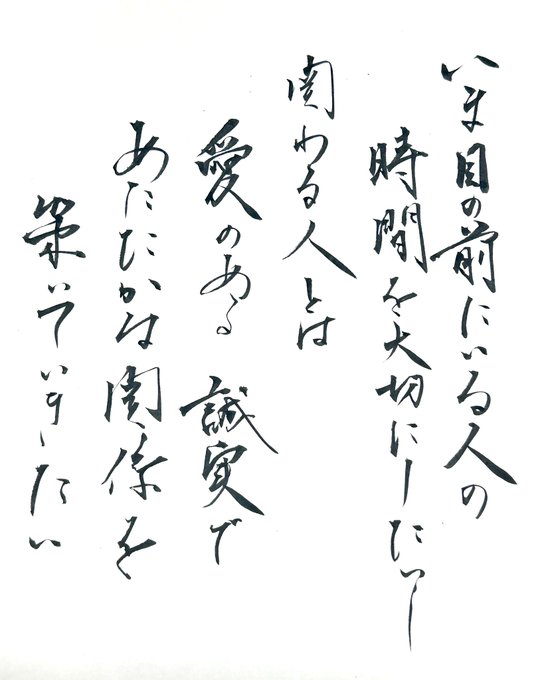 いま目の前にいる人の
時間を大切にしたいし
関わる人とは
愛のある 誠実で
あたたかな関係を
築いていきたい